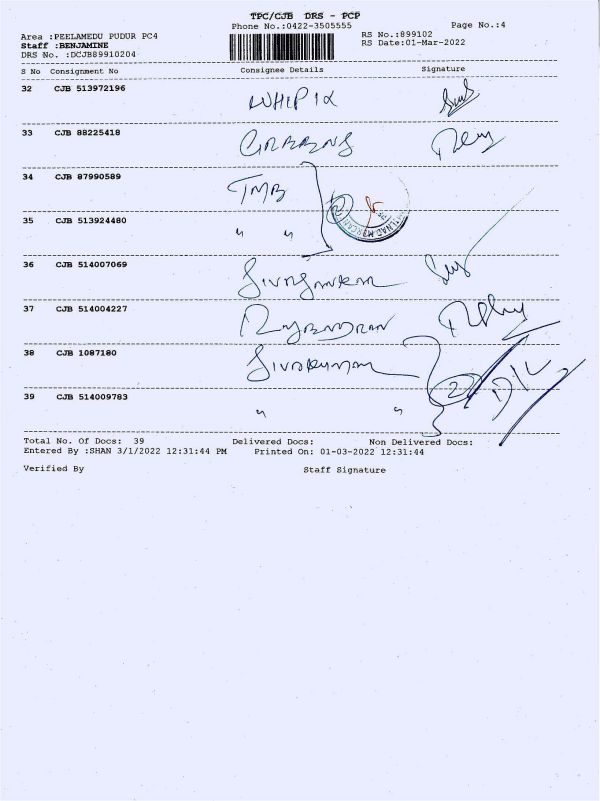 TPC/CJB DRS - PCP
Phone No.:0422-3505555
Page No.:4
Area :PEELAMEDU PUDUR PC4
RS No.:899102
Staff :BENJAMINE
RS Date:01-Mar-2022
DRS No. :DCJB89910204
S No Consignment No Consignee Details Signature
32 CJB 513972196 WHIPIX
33 CJB 88225418
34 CJB 87990589 TMB 2
35 CJB 513924480 " "
36 CJB 514007069 Sivasankar
37 CJB 514004227 Rajendran
38 CJB 1087180 Sivakumar 2
39 CJB 514009783 " "
Total No. Of Docs: 39 Delivered Docs: Non Delivered Docs:
Entered By :SHAN 3/1/2022 12:31:44 PM Printed On: 01-03-2022 12:31:44
Verified By Staff Signature